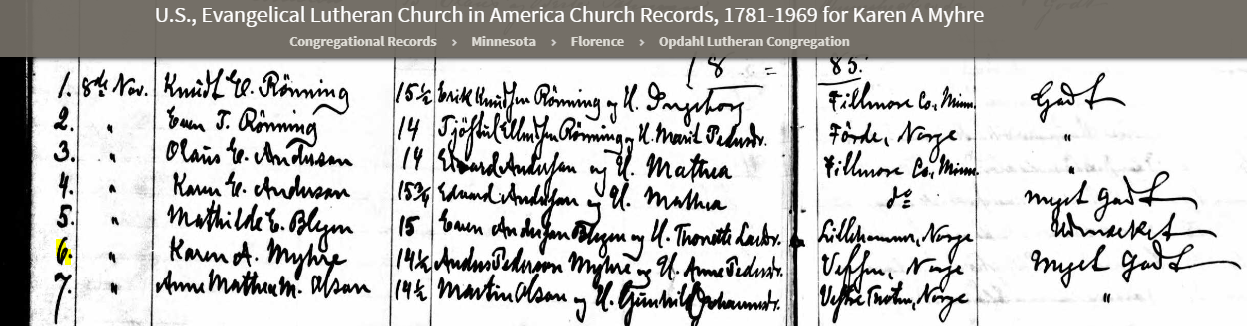 U.S., Evangelical Lutheran Church in America Church Records, 1781-1969 for Karen A Myhre
Congregational Records › Minnesota › Florence › Opdahl Lutheran Congregation
18 = 85.
1. 8de Nov. Knudt E. Rönning 15½ Erik Knudsen Rönning og H. Ingeborg Fillmore Co, Minn. Godt
2. " Even T. Rönning 14 Rönning og H. Marit Pedersdr. Förde, Norge "
3. " Olaus E. Anderson 14 Edvard Andersen og H. Mathea Fillmore Co, Minn. "
4. " Karen E. Anderson 15¾ Edvard Andersen og H. Mathea do Myet Godt
5. " Mathilde E. 15 Even Andersen og H. Lillehammer, Norge Udmærket
6. " Karen A. Myhre 14½ Anders Pederson Myhre og H. Anne Pedersdr. Norge Myet Godt
7. " Anne Mathea M. Olson 14½ Martin Olson og H. Gunhild Johannesdr. Norge "